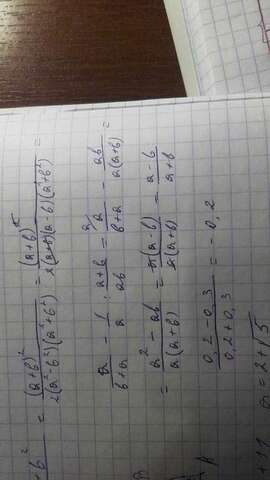 +b² = (a+b)² / 2(a²-b²)(a²+b²) = (a+b)² / 2(a+b)(a-b)(a²+b²) =
a / b+a - 1 / a · a+b / ab = a / b+a - ab / a(a+b) =
= a² - ab / a(a+b) = a(a-b) / a(a+b) = a-b / a+b
0,2-0,3 / 0,2+0,3 = -0,2
= 2+√5